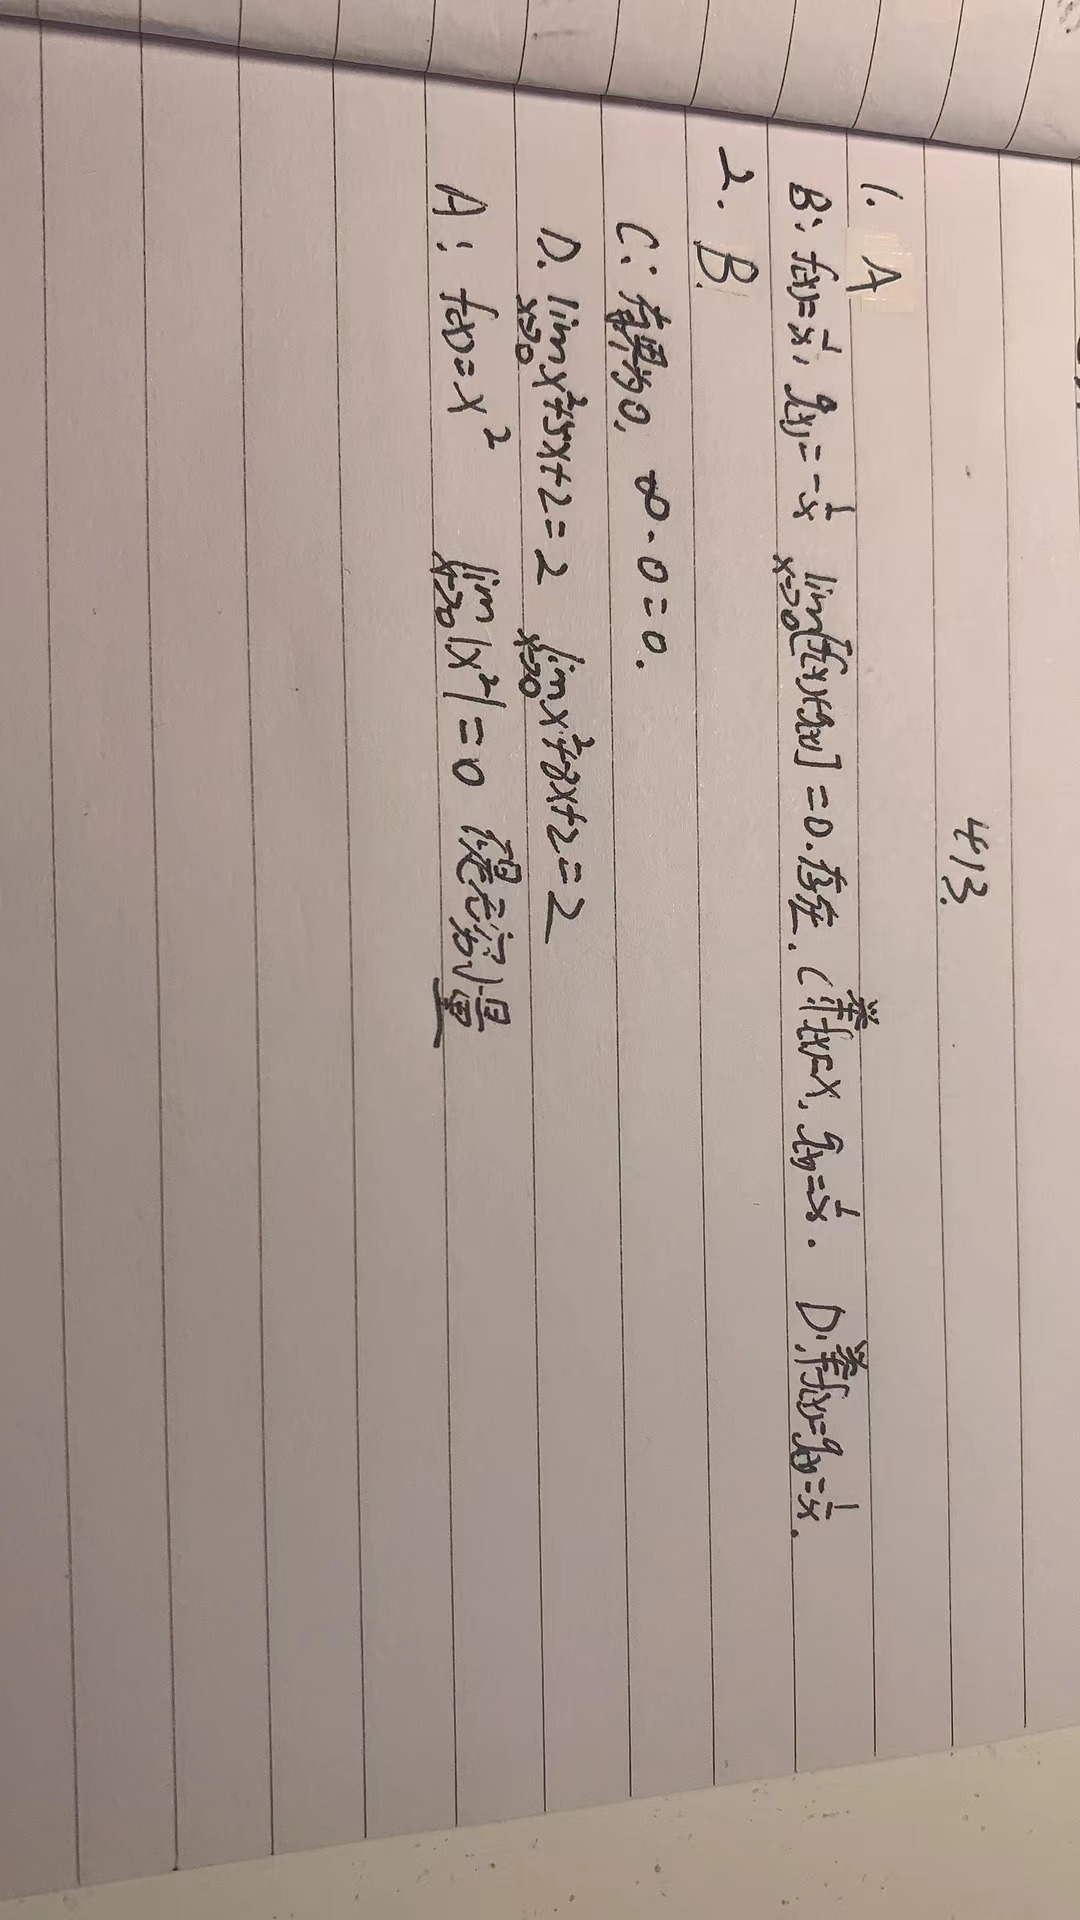 4.13.
1. A
B: f(x)=1/x, g(x)=-1/x lim x→0 [f(x)+g(x)]=0.存在. C:若f(x)=x, g(x)=1/x. D:若f(x)=g(x)=1/x.
2. B.
C: 有界为0, ∞·0=0.
D. lim x→0 x²+3x+2=2 lim x→0 x²+2x+2=2
A: f(x)=x² lim x→0 |x²|=0 很无穷小量